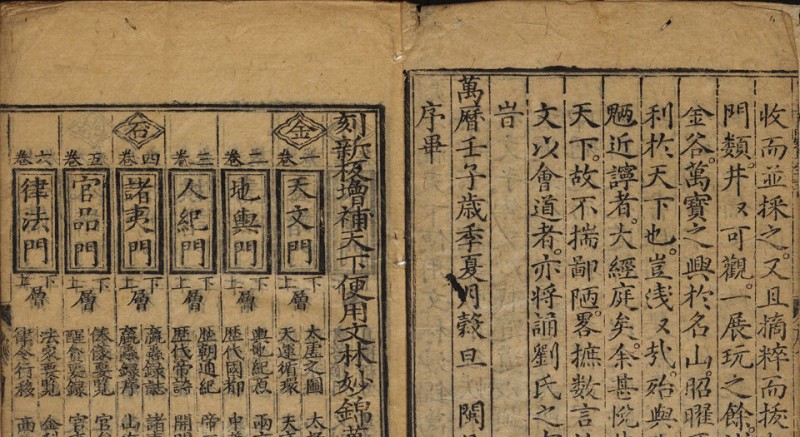 收而並採之。又且摘粹而拔
門類。井々可觀。一展玩之餘。
金谷萬寶之興於名山。昭曜
利於天下也。豈浅々㢤。殆與
魎近諄者。大經庭矣。余甚悅
天下。故不揣鄙陋。畧摭數言
文以會道者。亦將誦劉氏之
旹
萬曆壬子歳季夏月糓旦 閩
序畢
刻新板增補天下便用文林妙錦萬
金
一卷 天文門 下上層
太虛之圖
天運循環 天文
二卷 地輿門 下上層
輿地紀原
歷代國都
三卷 人紀門 下上層
歷朝通紀 帝
歷代帝詩
石
四卷 諸夷門 下上層
臝蟲錄誌 諸
臝蟲錄序
五卷 官品門 下上層
要覽 官
要錄 官
六卷 律法門 下上層
法家要覽 金
律令行移